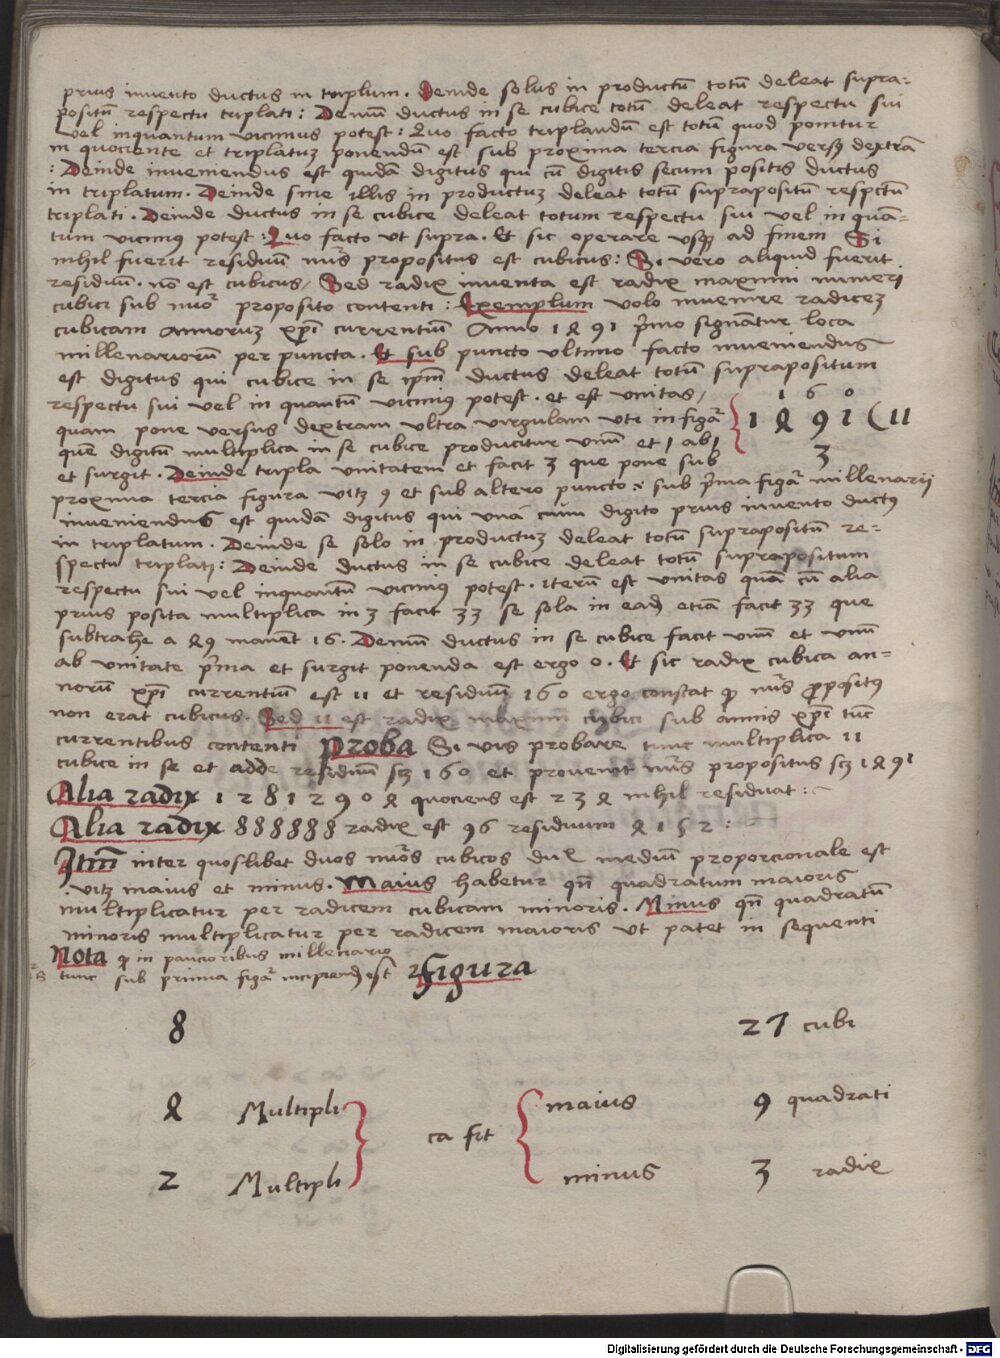 prius invento ductus in triplum. Deinde solus in productū totū deleat supra=
positū respectu triplati: Demū ductus in se cubice totū deleat respectu sui
vel inquantum vicinius potest: Quo facto triplandū est totū quod ponitur
in quociente et triplatuȝ ponendū est sub proxima tercia figura versꝫ dextrā
: Deinde inveniendus est quidā digitus qui cū digitis secum positis ductus
in triplatum. Deinde sine illis in productuȝ deleat totū suprapositū respctū
triplati. Deinde ductus in se cubice deleat totum respectu sui vel in quā=
tum vicinius potest: Quo facto ut supra. Et sic operare usqꝫ ad finem Si
nihil fuerit residuū nūs propositus est cubicus: Si vero aliquid fuerit
residuū. nō est cubicus, Sed radix inventa est radix maximi numeri
cubici sub nūo proposito contenti: Exemplum volo invenire radiceȝ
cubicam annoruȝ xpī currentiū Anno 1491 p̄mo signātur loca
millenariorū per puncta. Et sub puncto ultimo facto inveniendus
est digitus qui cubice in se ip̄m ductus deleat totū suprapositum
respectu sui vel in quantū vicinius potest. et est unitas,
quam pone versus dextram ultra virgulam uti in figā
quē digitū multiplica in se cubice producitur unū et 1 ab 1
et surgit. Deinde tripla unitatem et facit 3 que pone sub
1 6 0
1 4 9 1 ( 11
3
proxima tercia figura vitȝ 9 et sub altero puncto: sub p̄ma figā millenarii
inveniendus est quidā digitus qui unā cum digito prius invento ductus
in triplatum. Deinde se solo in productuȝ deleat totū suprapositū re=
spectu triplati: Deinde ductus in se cubice deleat totū suprapositum
respectu sui vel inquantū vicinius potest. iterū est unitas quā cū alia
prius posita multiplica in 3 facit 33 se sola in eadꝫ etiā facit 33 que
subtrahe a 49 manēt 16. Demū ductus in se cubice facit unū et unū
ab unitate p̄ma et surgit ponenda est ergo 0. Et sic radix cubica an=
norū xpī currentiū est 11 et residuū 160 ergo constat ꝙ nūs ꝓpositus
non erat cubicus. Sed 11 est radix maximi cubici sub annis xpī tūc
currentibus contenti Proba Si vis probare tunc multiplica 11
cubice in se et adde residuū scȝ 160 et proveniet nūs propositus scȝ 1491
Alia radix 12812904 quociens est 234 nihil residuat:
Alia radix 888888 radix est 96 residuum 4152:
Itm̄ inter quoslibet duos nūos cubicos duꝫ mediū proporcionale est
vitȝ maius et minus. Maius habetur qn̄ quadratum maioris
multiplicatur per radicem cubicam minoris. Minus qn̄ quadratū
minoris multiplicatur per radicem maioris ut patet in sequenti
Nota ꝙ in paucioribus millenario
tunc sub prima figā incipiendꝫ est figura
8 27 cubi
4 Multipli maius 9 quadrati
ca fit
2 Multipli minus 3 radix
Digitalisierung gefördert durch die Deutsche Forschungsgemeinschaft - DFG